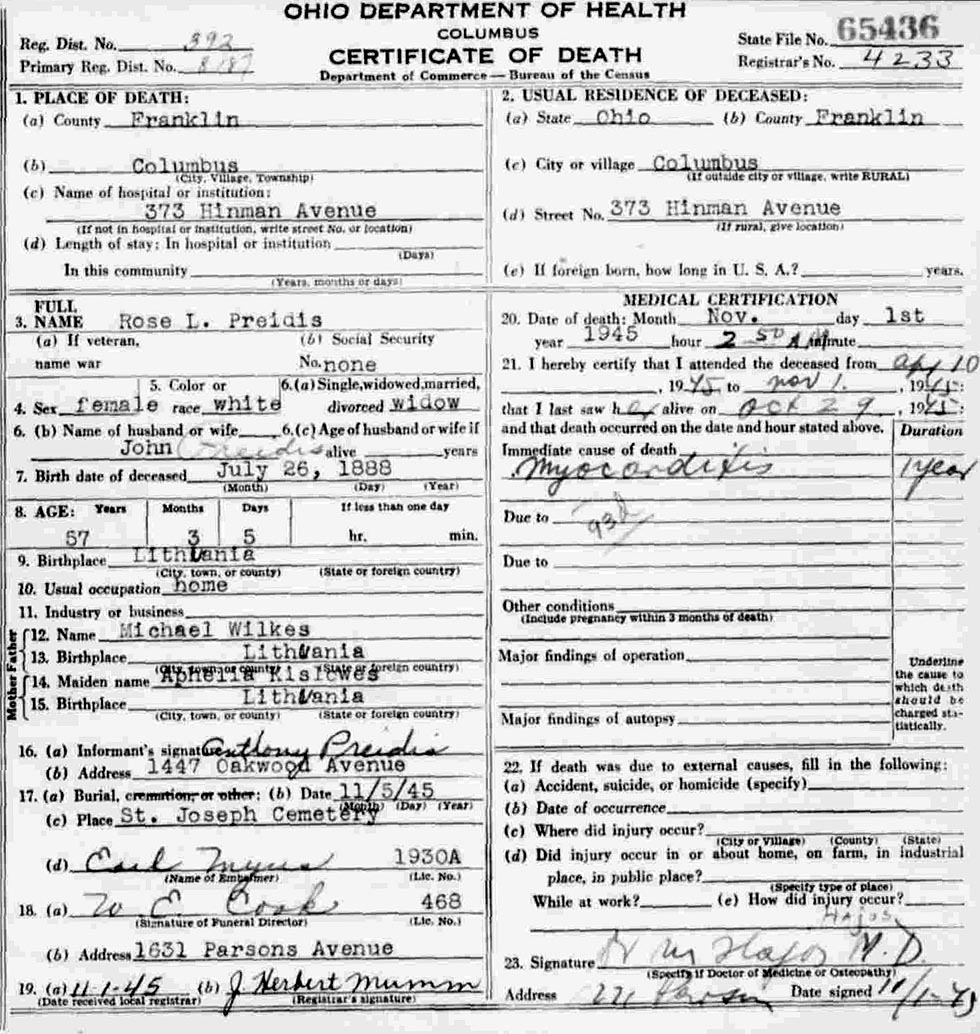 OHIO DEPARTMENT OF HEALTH
COLUMBUS
CERTIFICATE OF DEATH
Department of Commerce — Bureau of the Census
Reg. Dist. No. 392
Primary Reg. Dist. No.
State File No. 65436
Registrar's No. 4233
1. PLACE OF DEATH:
(a) County Franklin
(b) Columbus
(City, Village, Township)
(c) Name of hospital or institution:
373 Hinman Avenue
(If not in hospital or institution, write street No. or location)
(d) Length of stay: In hospital or institution
(Days)
In this community
(Years, months or days)
2. USUAL RESIDENCE OF DECEASED:
(a) State Ohio (b) County Franklin
(c) City or village Columbus
(If outside city or village, write RURAL)
(d) Street No. 373 Hinman Avenue
(If rural, give location)
(e) If foreign born, how long in U. S. A.? years.
FULL
3. NAME Rose L. Preidis
(a) If veteran, (b) Social Security
name war No. none
5. Color or 6.(a) Single, widowed, married,
4. Sex female race white divorced widow
6. (b) Name of husband or wife 6.(c) Age of husband or wife if
John Preidis alive years
7. Birth date of deceased July 26, 1888
(Month) (Day) (Year)
8. AGE: Years Months Days If less than one day
57 3 5 hr. min.
9. Birthplace Lithuania
(City, town, or county) (State or foreign country)
10. Usual occupation home
11. Industry or business
Father
12. Name Michael Wilkes
13. Birthplace Lithuania
(City, town, or county) (State or foreign country)
Mother
14. Maiden name Aphelia Kislewes
15. Birthplace Lithuania
(City, town, or county) (State or foreign country)
16. (a) Informant's signature Anthony Preidis
(b) Address 1447 Oakwood Avenue
17. (a) Burial, cremation, or other: (b) Date 11/5/45
(Month) (Day) (Year)
(c) Place St. Joseph Cemetery
(d) Earl Myers 1930A
(Name of Embalmer) (Lic. No.)
18. (a) W E Cook 468
(Signature of Funeral Director) (Lic. No.)
(b) Address 1631 Parsons Avenue
19. (a) 11-1-45 (b) J. Herbert Mumm
(Date received local registrar) (Registrar's signature)
MEDICAL CERTIFICATION
20. Date of death: Month Nov. day 1st
year 1945 hour 2 50 A M minute
21. I hereby certify that I attended the deceased from Apr 10
, 1945 to Nov 1. , 1945:
that I last saw her alive on Oct 29 , 1945:
and that death occurred on the date and hour stated above. Duration
Immediate cause of death
Myocarditis 1 year
Due to 93d
Due to
Other conditions
(Include pregnancy within 3 months of death)
Major findings of operation
Major findings of autopsy
Underline
the cause to
which death
should be
charged sta-
tistically.
22. If death was due to external causes, fill in the following:
(a) Accident, suicide, or homicide (specify)
(b) Date of occurrence
(c) Where did injury occur?
(City or Village) (County) (State)
(d) Did injury occur in or about home, on farm, in industrial
place, in public place?
(Specify type of place)
While at work? (e) How did injury occur?
HAJOS
23. Signature M Hajos M.D.
(Specify if Doctor of Medicine or Osteopathy)
Address Date signed 11/1-45